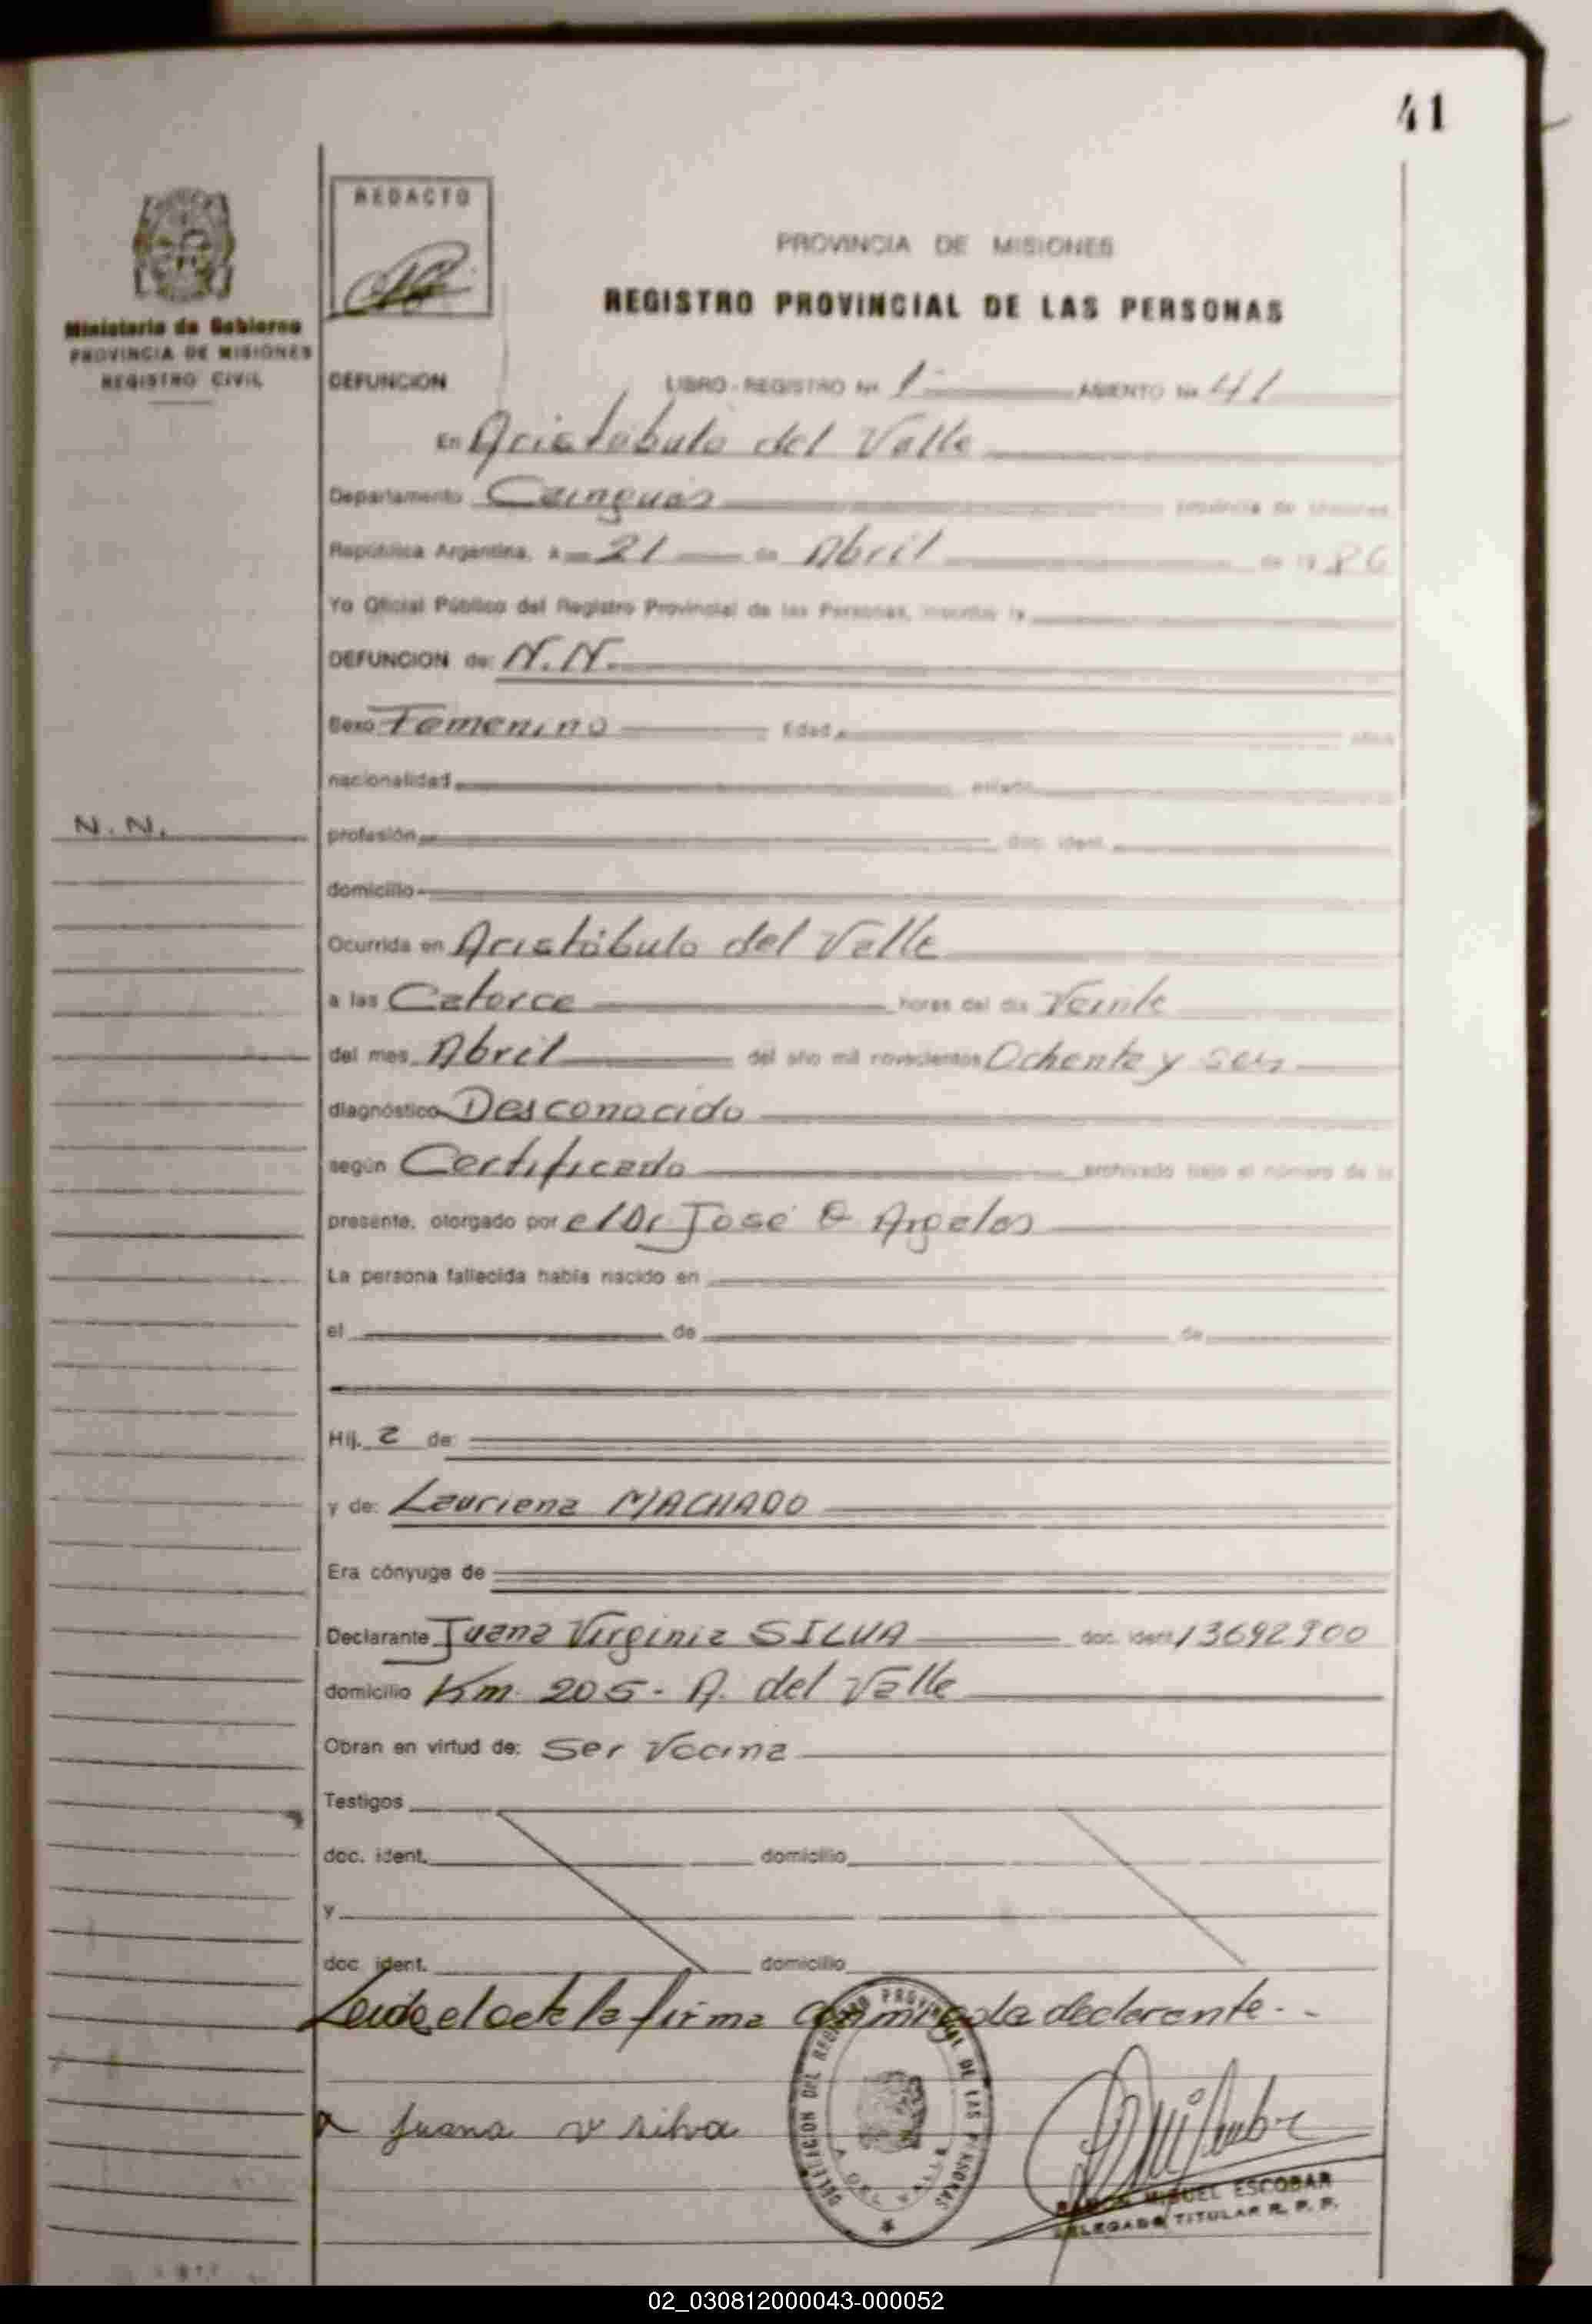 41
REDACTO
Ministerio de Gobierno
PROVINCIA DE MISIONES
REGISTRO CIVIL
PROVINCIA DE MISIONES
REGISTRO PROVINCIAL DE LAS PERSONAS
DEFUNCION LIBRO - REGISTRO Nº 1 ASIENTO Nº 41
En Aristóbulo del Valle
Departamento Cainguás provincia de Misiones
República Argentina, a 21 de Abril de 1986
Yo Oficial Público del Registro Provincial de las Personas, inscribo la
DEFUNCION de: N.N.
Sexo Femenino Edad años
nacionalidad estado
N.N.
profesión doc. ident.
domicilio
Ocurrida en Aristóbulo del Valle
a las Catorce horas del día Veinte
del mes Abril del año mil novecientos Ochenta y seis
diagnóstico Desconocido
según Certificado archivado bajo el número de la
presente, otorgado por el Dr José Argelos
La persona fallecida había nacido en
el de de
Hij a de:
y de: Lauriena MACHADO
Era cónyuge de
Declarante Juana Virginia SILVA doc. ident. 13692900
domicilio Km. 205 - A. del Valle
Obran en virtud de: Ser Vecina
Testigos
doc. ident. domicilio
y
doc. ident. domicilio
Leida el acta la firma conmigo la declarante.-
Juana v silva
DELEGACION DEL REGISTRO PROVINCIAL DE LAS PERSONAS
A. DEL VALLE
RAMON MIGUEL ESCOBAR
DELEGADO TITULAR R. P. P.
02_030812000043-000052